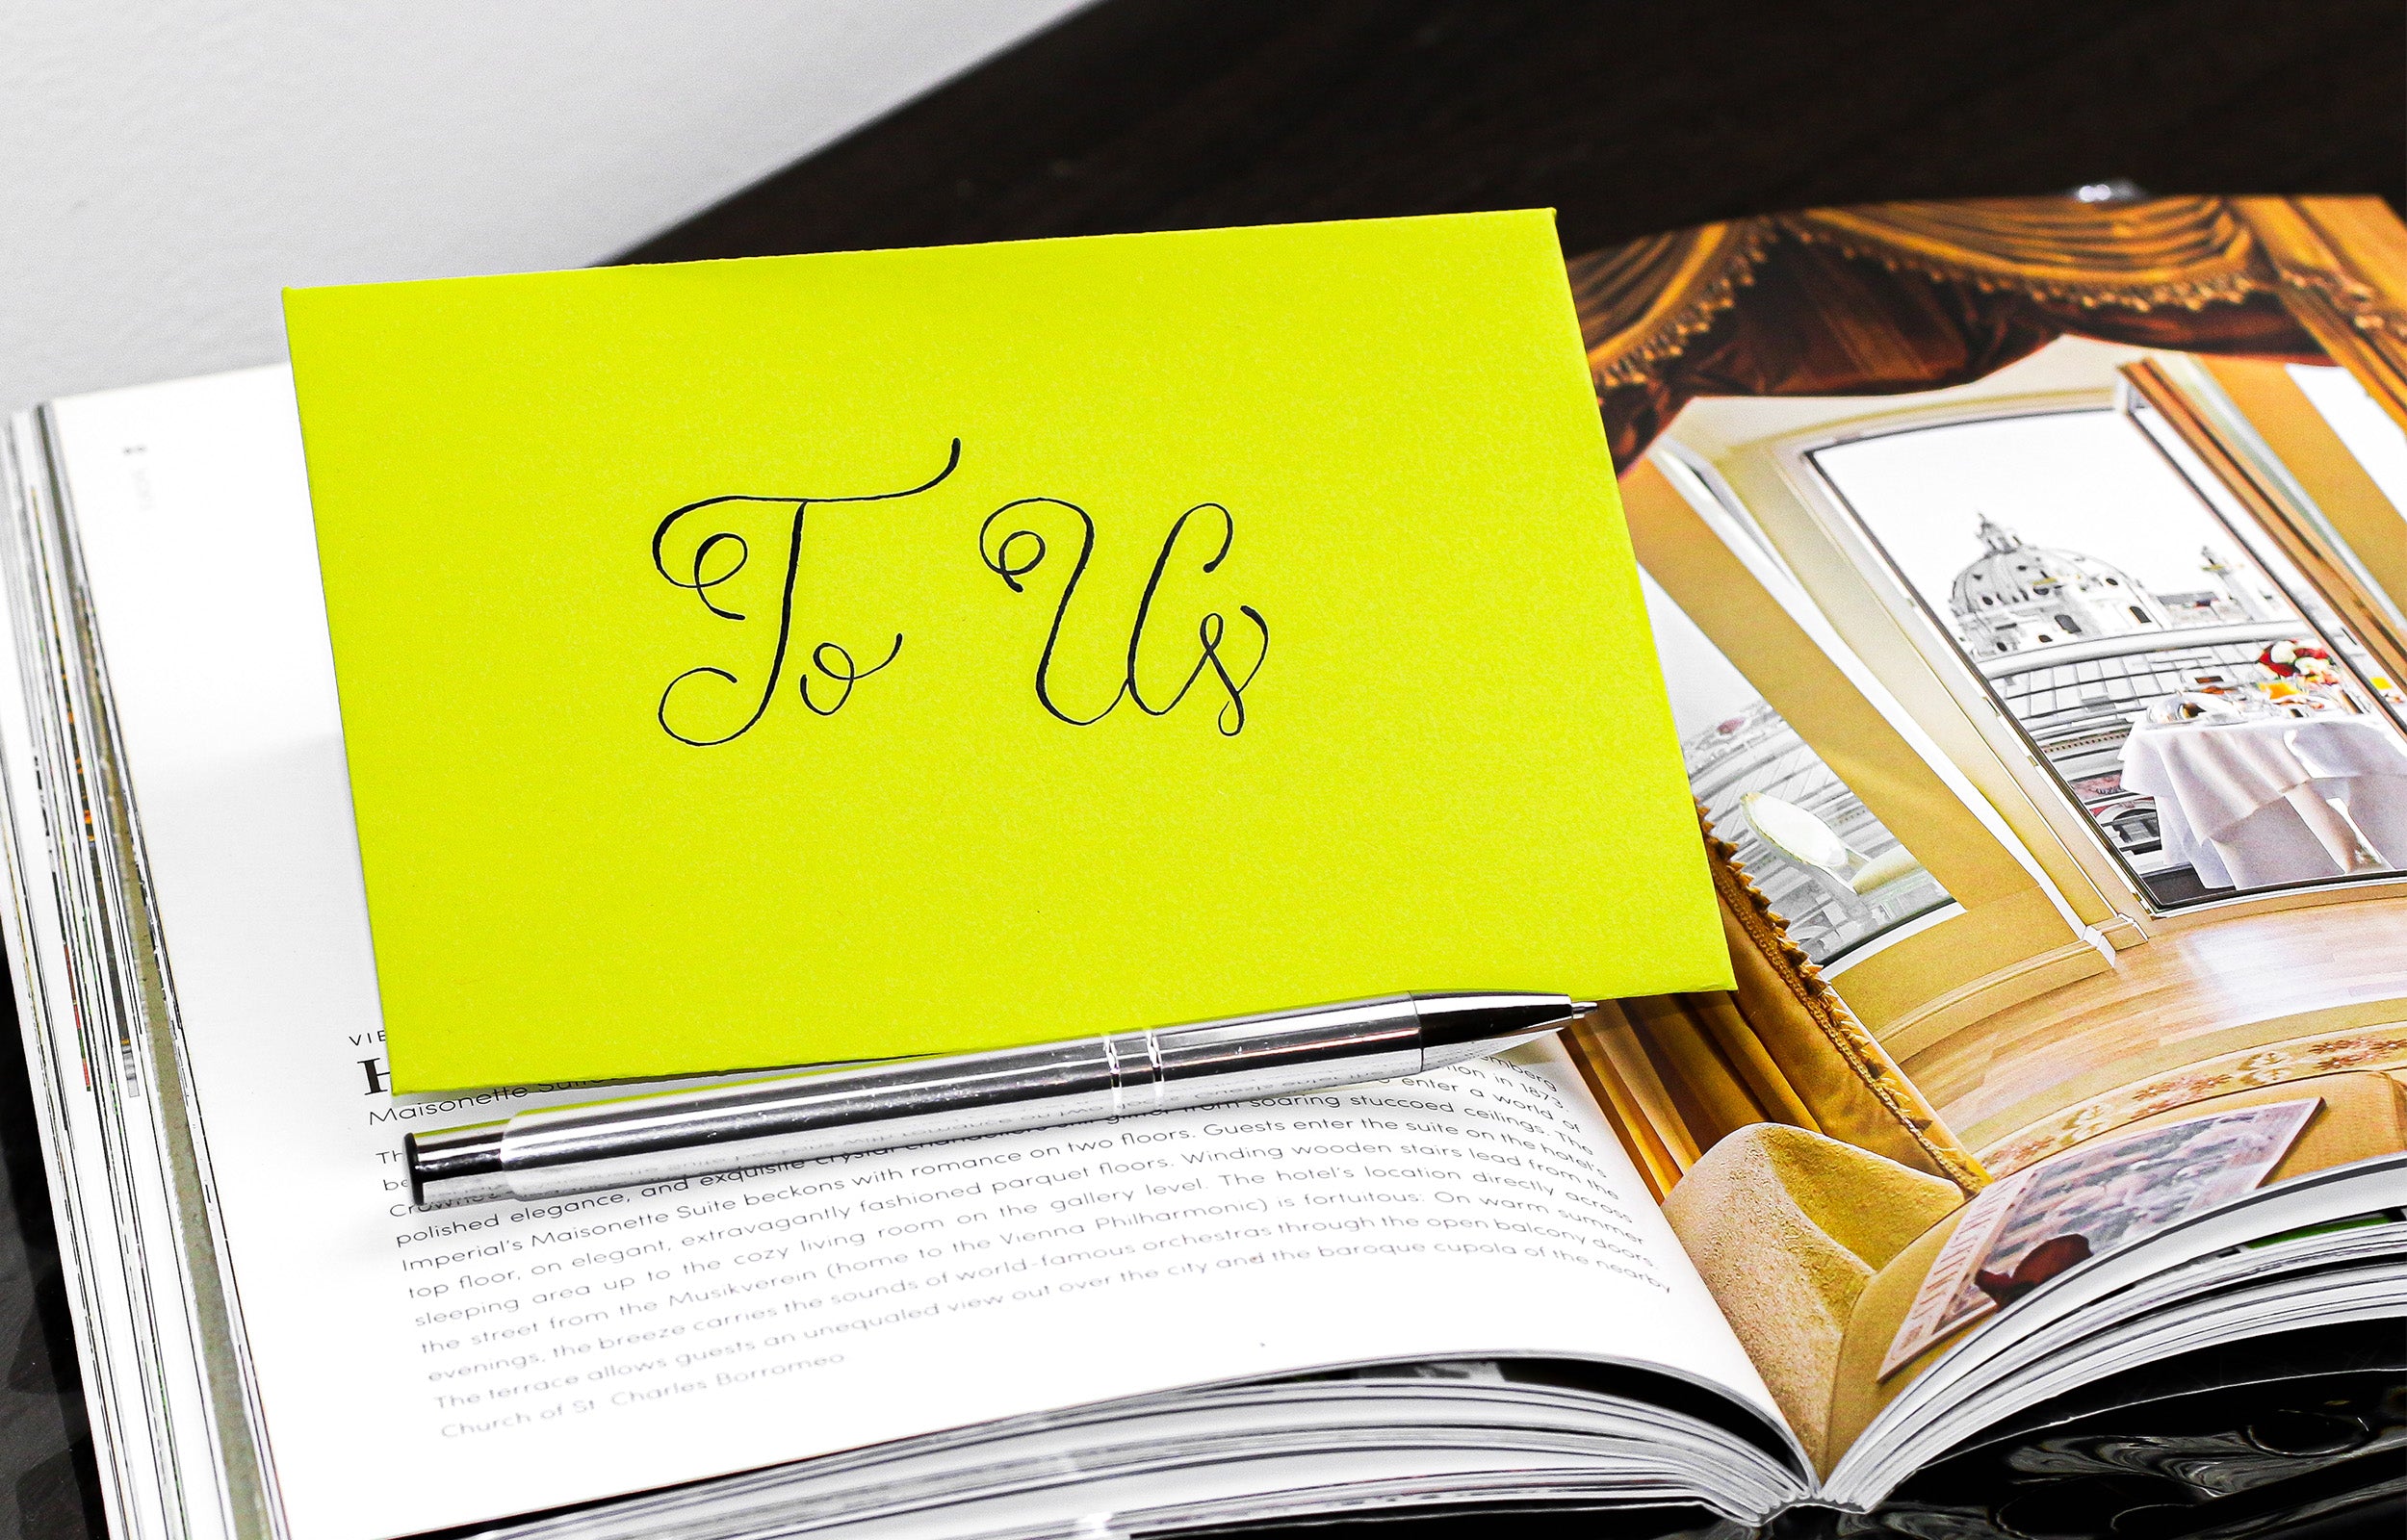 To Us
VIE
H
Maisonette Suite
Th
be
enter a world of
polished elegance, and exquisite crystal chandeliers still glitter from soaring stuccoed ceilings. The
Imperial's Maisonette Suite beckons with romance on two floors. Guests enter the suite on the hotel's
top floor, on elegant, extravagantly fashioned parquet floors. Winding wooden stairs lead from the
sleeping area up to the cozy living room on the gallery level. The hotel's location directly across
the street from the Musikverein (home to the Vienna Philharmonic) is fortuitous: On warm summer
evenings, the breeze carries the sounds of world-famous orchestras through the open balcony doors.
The terrace allows guests an unequaled view out over the city and the baroque cupola of the nearby
Church of St. Charles Borromeo